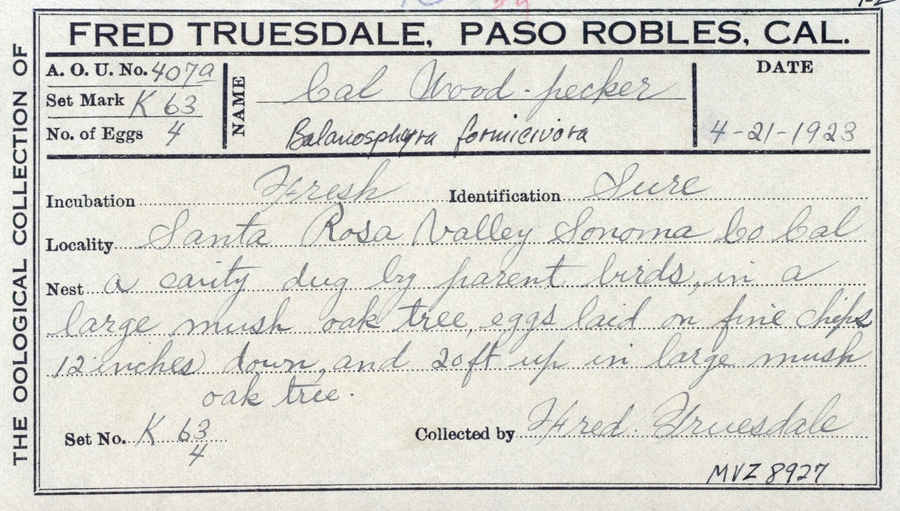 THE OOLOGICAL COLLECTION OF
FRED TRUESDALE, PASO ROBLES, CAL.
A. O. U. No. 407a
Set Mark K 63
No. of Eggs 4
NAME
Cal Wood-pecker
Balanosphyra formicivora
DATE
4-21-1923
Incubation Fresh Identification Sure
Locality Santa Rosa Valley Sonoma Co Cal
Nest a cavity dug by parent birds, in a
large mush oak tree, eggs laid on fine chips
12 inches down, and 20ft up in large mush
oak tree.
Set No. K 63
4
Collected by Fred. Truesdale
MVZ 8927